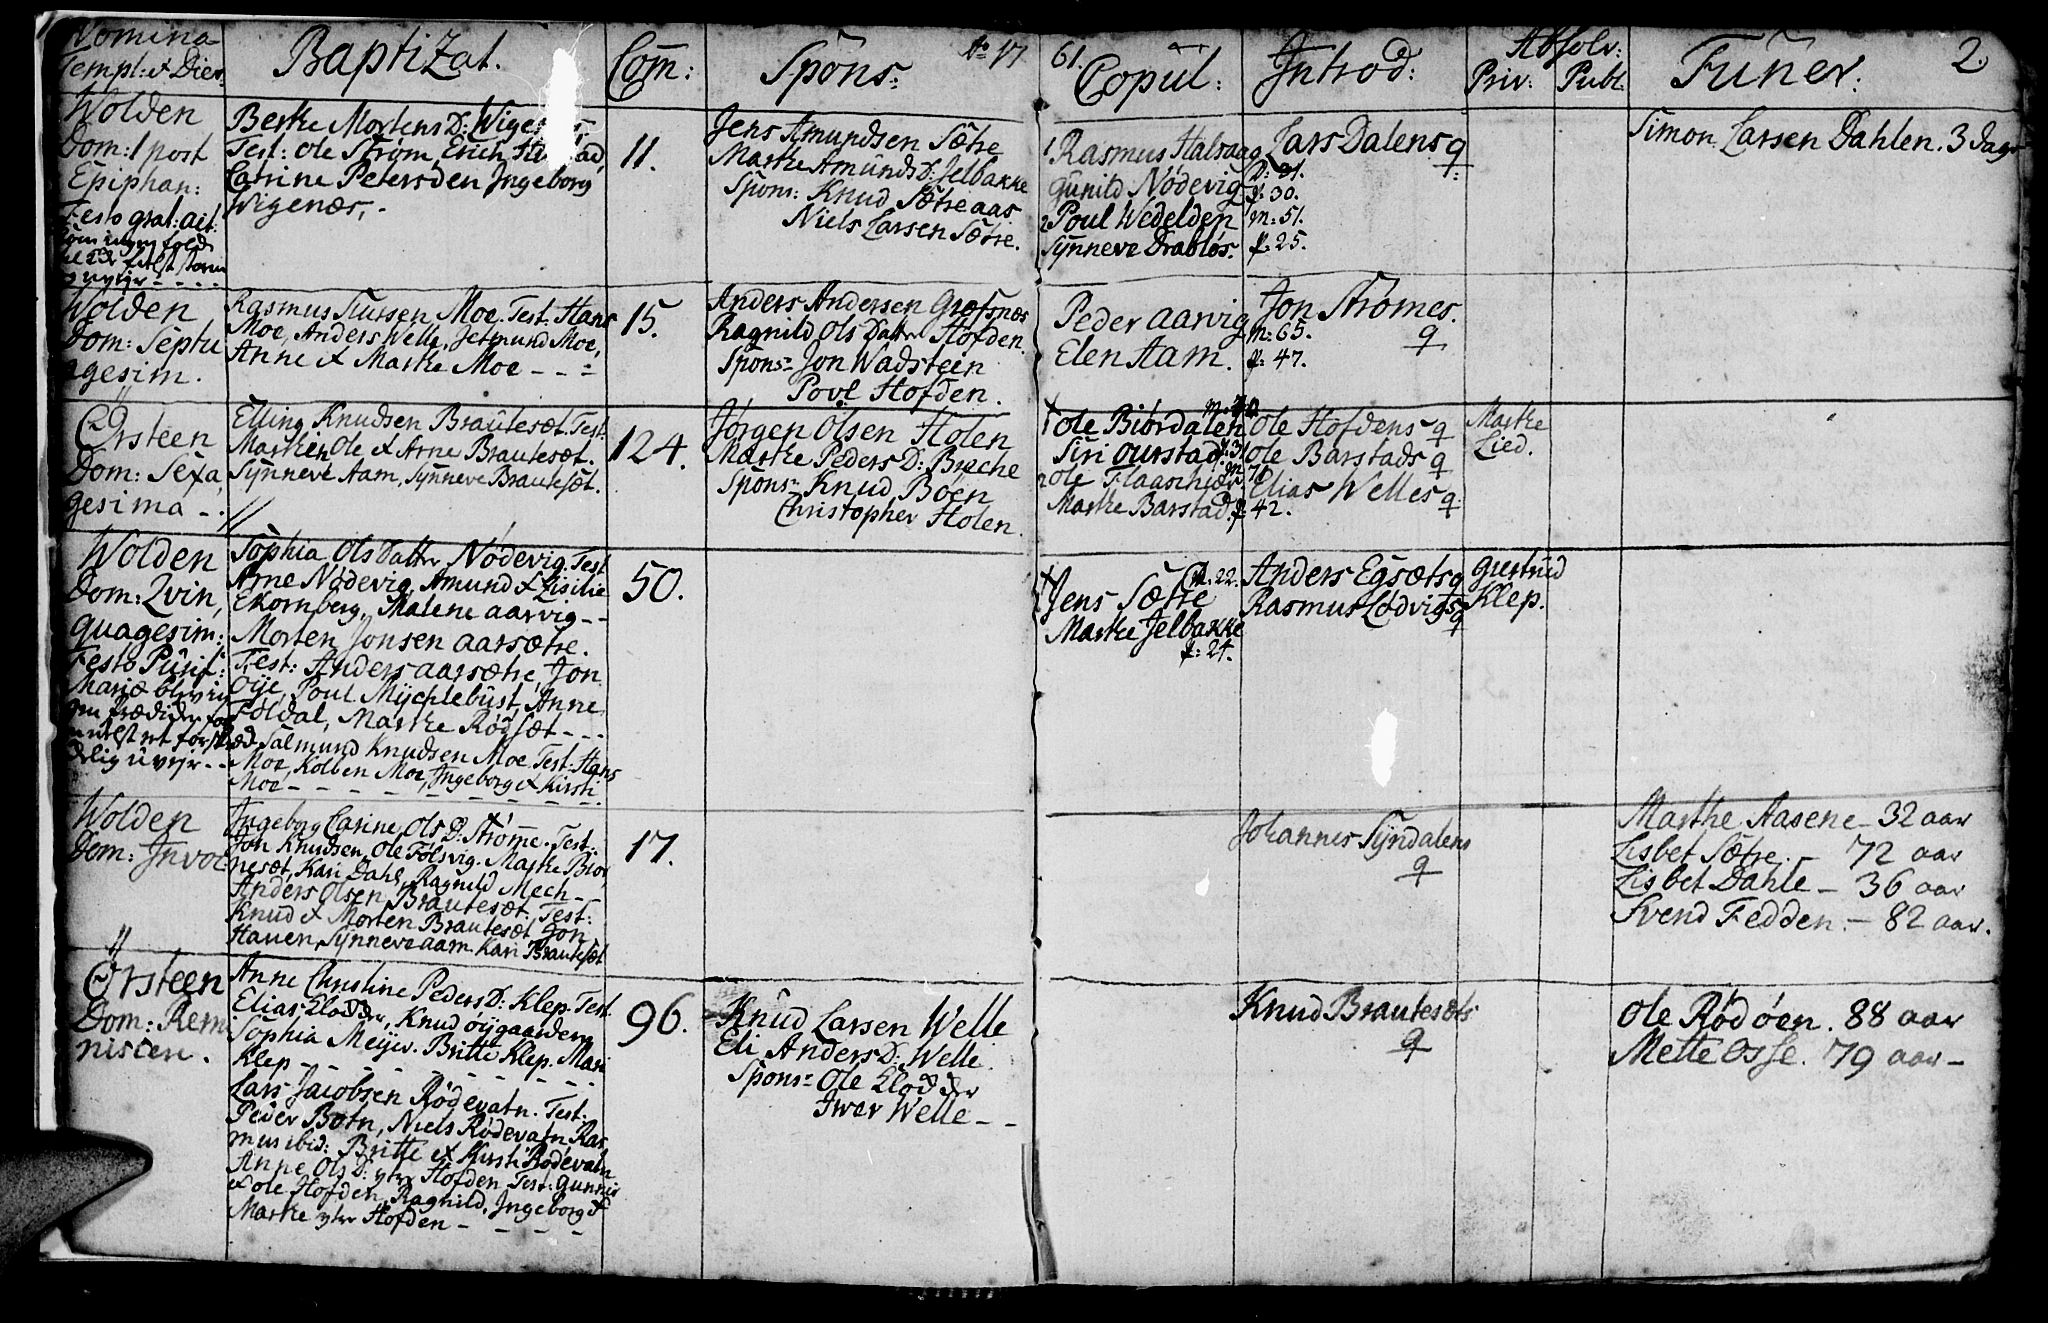 Nomina Templ: & Dier.
Baptizat.
Com̄:
Spons:
Ao 17
61.
Copul:
Introd:
Absolv:
Priv: Publ:
Funer:
2.
Wolden
Dom: 1 post
Epiphan:
Festo
Berthe Mortens D: Wigenes,
Test: Ole Strøm, Erich
Catrine Petersden Ingeborg
Wigenæs, -
11.
Jens Amundsen Sætre
Marthe Amunds D: Jelbakke
Spons: Knud Sætreaas
Niels Larsen Sætre.
1 Rasmus Halsaag
Gunild Nødevig
2 Poul Wedelden
Synneve Drabløs.
Lars Dalens q
f: 30.
m: 51.
f: 25.
Simon Larsen Dahlen. 3 dage
Wolden
Dom: Septu
agesim.
Rasmus Moe. Test: Hans
Moe, Anders Welle, Jetmund Moe,
Anne & Marthe Moe - - -
15.
Anders Andersen
Ragnild Ols Datter Hofden.
Spons: Jon Wadsteen
Povl Hofden.
Peder Aarvig
Elen Aam.
Jon Strømes.
m: 65.
q
f: 47.
Ørsteen
Dom: Sexa
gesima - .
Elling Knudsen Brautesæt. Test:
Ole & Arne Brautesæt.
Synneve Aam, Synneve Brautesæt.
124.
Jørgen Olsen Holen
Marthe Peders D: Brache
Spons: Knud Böen
Christopher Holen.
1 Ole Biørdalen
Siri Ourstad
2 Ole
Marthe Barstad f: 42.
Ole Hofdens q
Ole Barstads q
Elias Welles q
Marthe
Lied.
Wolden
Dom: Qvin,
quagesim:
Festo Purif:
Mariæ
Sophia Ols Datter Nødevig. Test
Arne Nødevig, Amund & Zisilie
Ekornberg, Malene aarvig - -
Morten Jonsen aarsætre.
Test: Anders aarsætre, Jon
Oÿe, Poul Mÿchlebust, Anne
Foldal, Marthe Rødsæt - - -
Salmund Knudsen Moe. Test: Hans
Moe, Kolben Moe, Ingeborg & Kirsti
Moe - - - - - - - - -
50.
m. 22.
Jens Sætre
Marthe Jelbakke
f: 24.
Anders Egsæts q
Rasmus Lødvigs q
Giertrud
Klep.
Wolden
Dom: Invoc:
Ingeborg Carine Ols D: Strømme. Test:
Jon Knudsen, Ole Følsvig, Marthe Biør,
nesæt, Kari Dahl, Ragnild Mech -
Anders Olsen Brautesæt. Test:
Knud & Morten Brautesæt, Jon
Hauen, Synneve aam. Kari Brautesæt
17.
Johannes Sÿndalens
q
Marthe Aasene - 32 aar
Lisbet Sætre. 72 aar
Lisbet Dahle - 36 aar
Svend Fedden. - 82 aar.
Ørsteen
Dom: Remi
niscere.
Anne Christine Peders D: Klep. Test.
Elias Knud öÿgaarden
Sophia Meÿer. Britte Klep. Mari
Klep - - - - - - - -
Lars Jacobsen Rödevatn. Test.
Peder Botn, Niels Rødevatn, Ras,
mus ibid: Britte & Kirsti Rødevatn
Anne Ols D: Hofden Test: Gunner
& Ole Hofden, Ragnild, Ingeborg &
Marthe Hofden - - - - -
96.
Knud Larsen Welle
Eli Anders D: Welle.
Spons: Ole
Iwer Welle - -
Knud Brautesæts
q
Ole Rødöen. 88 aar
Mette Osse. 79 aar -